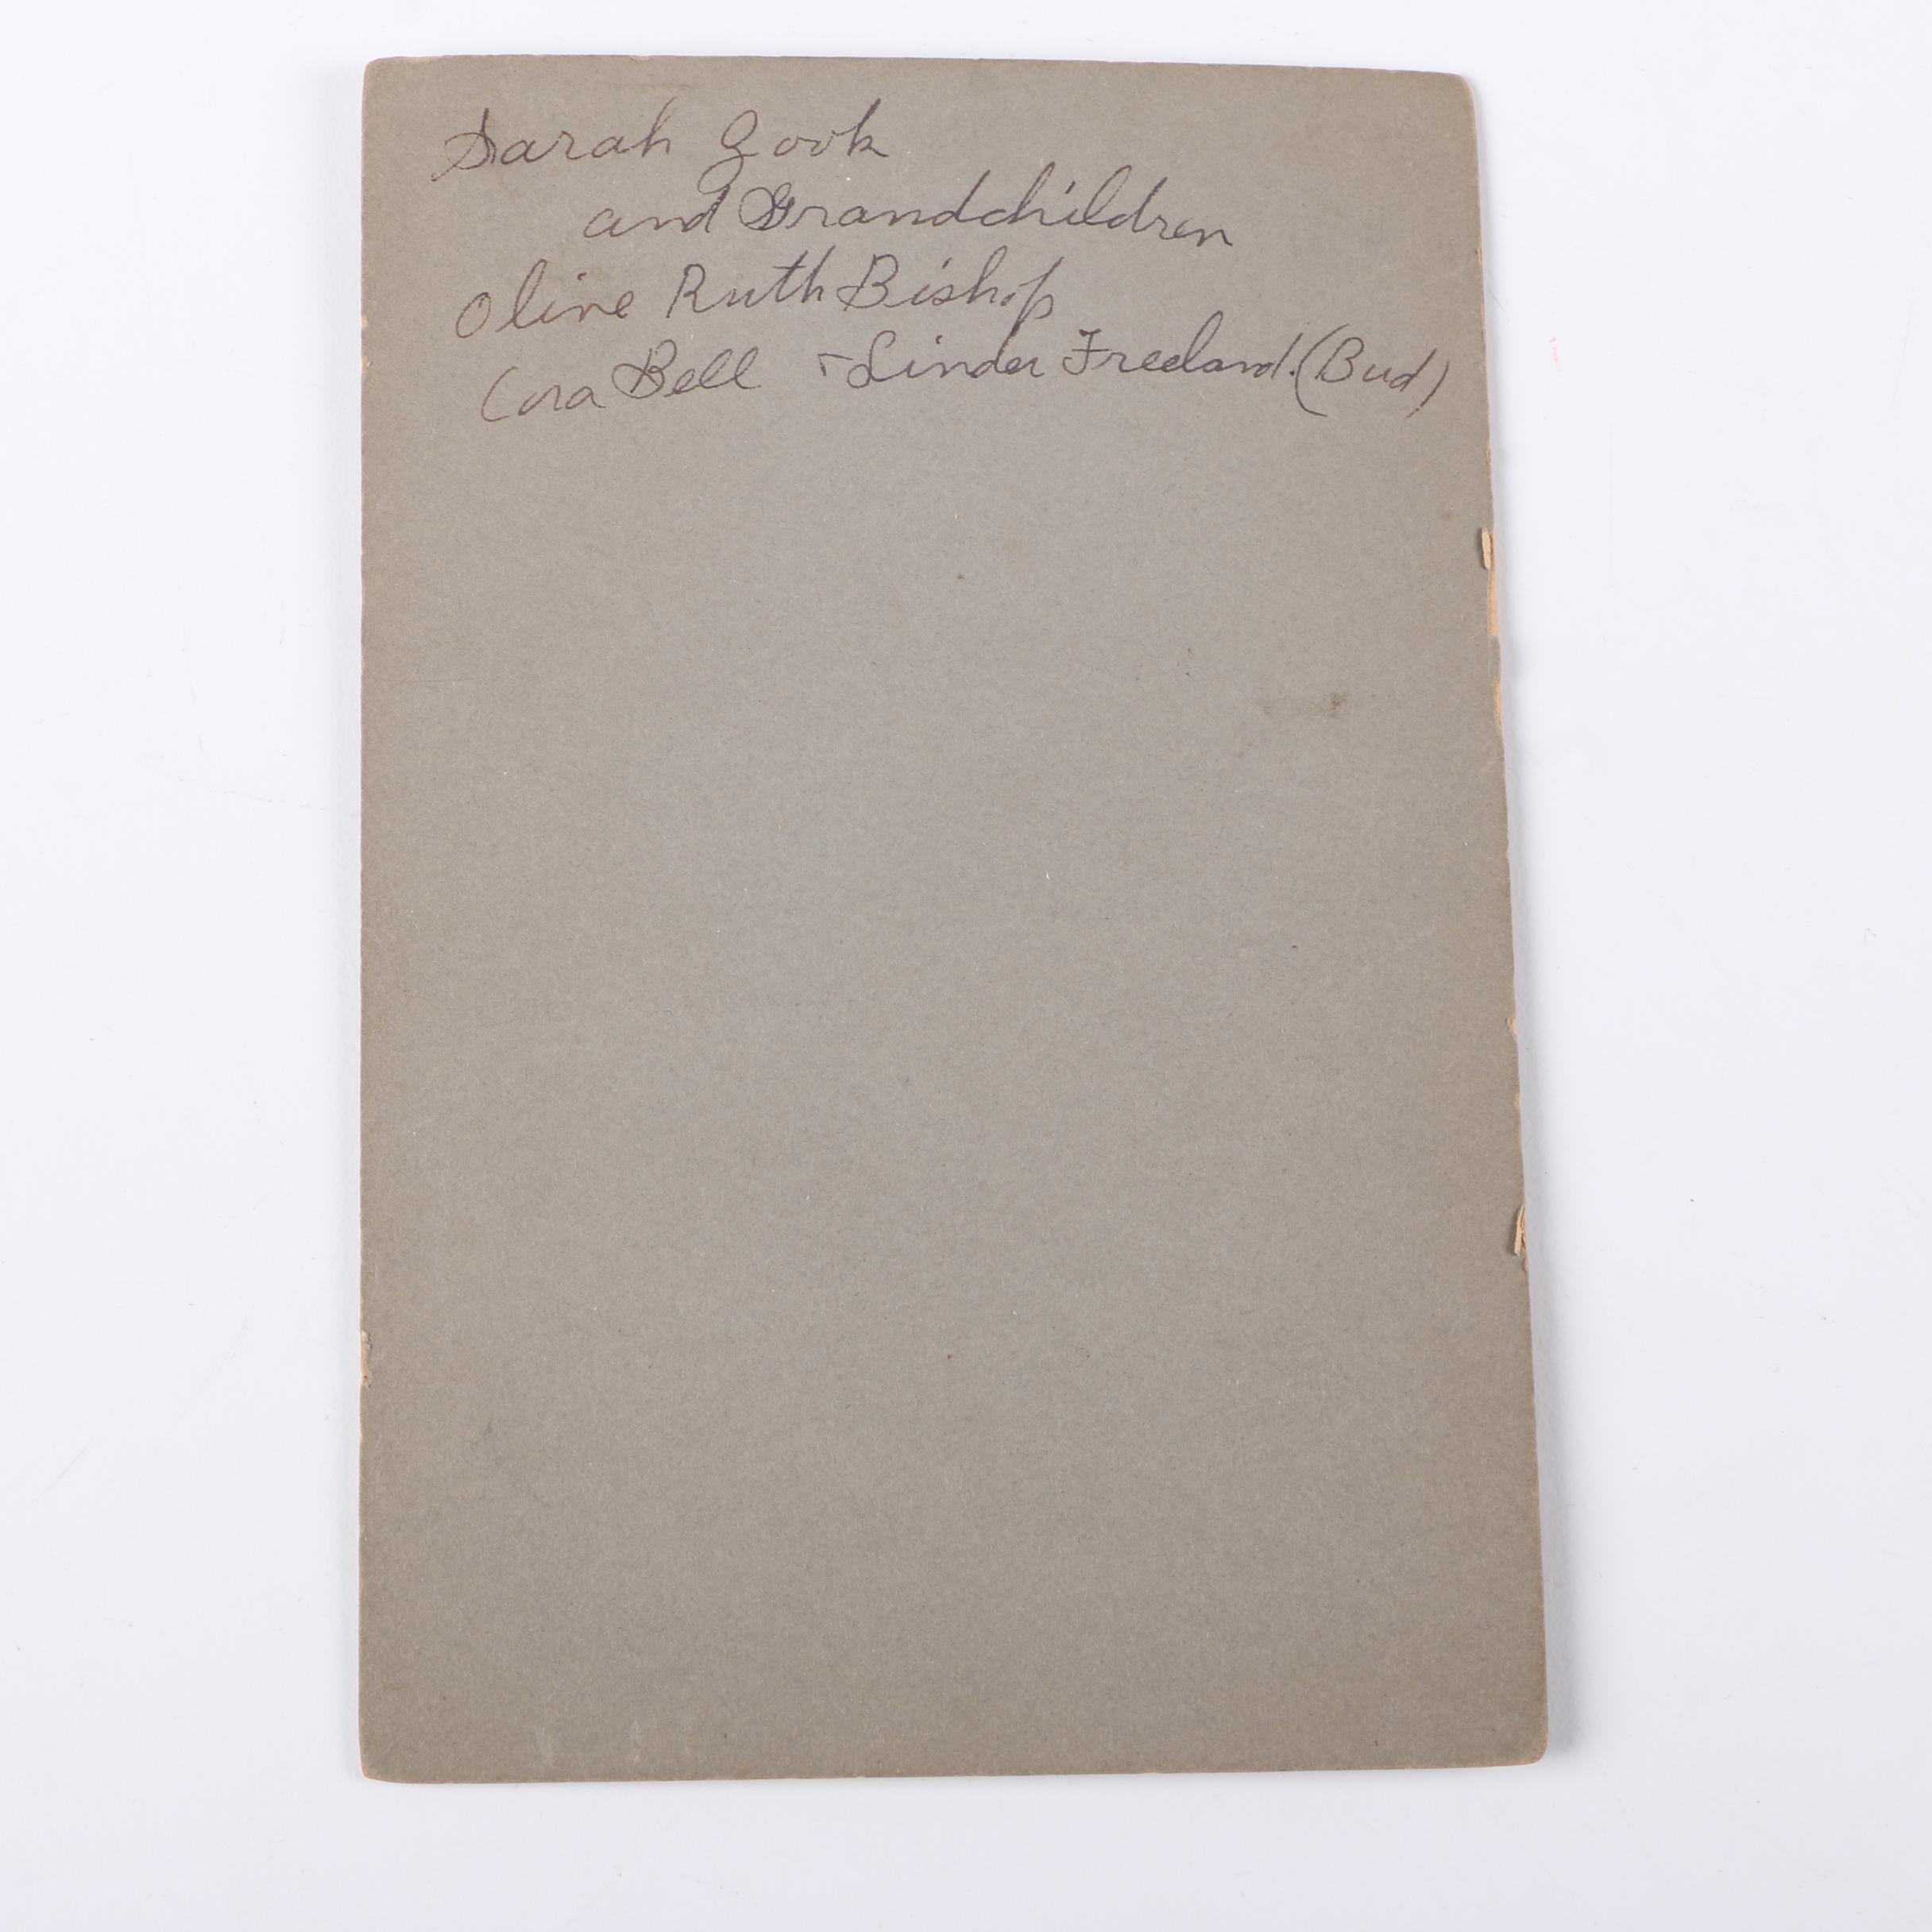 Sarah Zook
and Grandchildren
Olive Ruth Bishop
Cora Bell & Linder Freeland. (Bud)